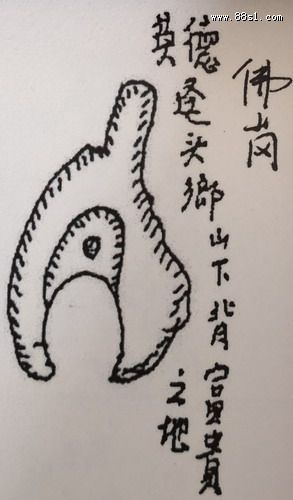 www.88s1.com
佛岗
英德逕头鄉山下背富貴
之地